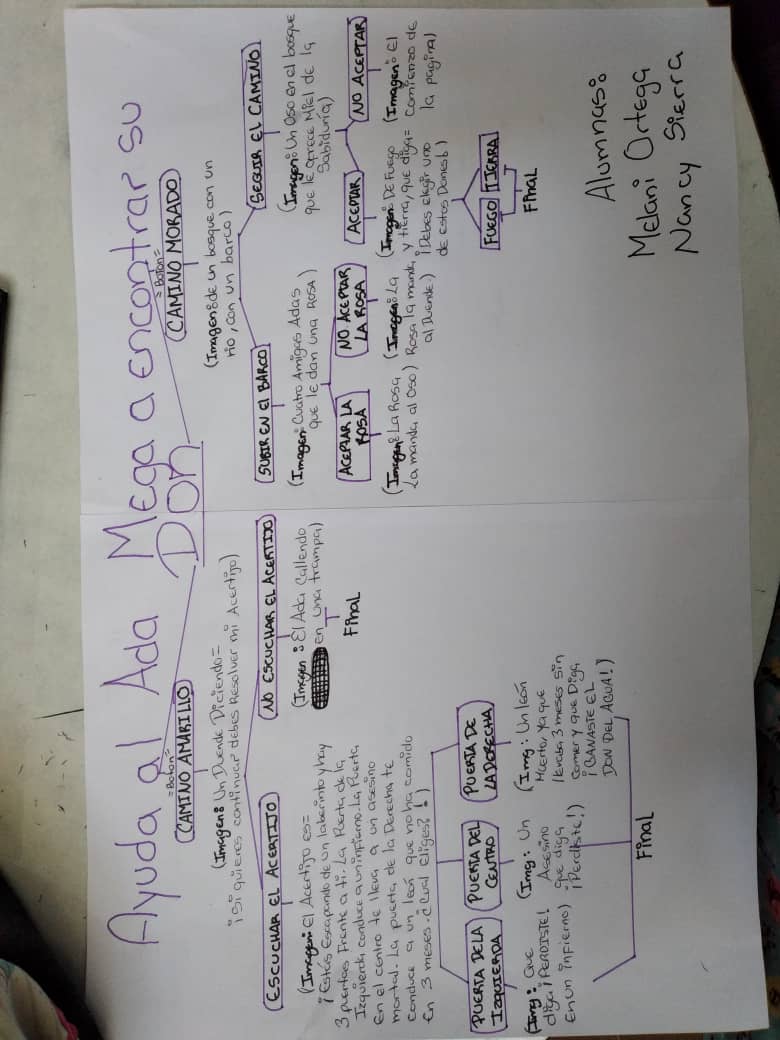 Ayuda al Ada Mega a encontrar su
Don
=Boton=
CAMINO AMARILLO
(Imagen: Un Duende Diciendo=
¡Si quieres continuar debes Resolver mi Acertijo)
ESCUCHAR EL ACERTIJO
(Imagen: El Acertijo es=
¡Estás Escapando de un laberinto y hay
3 puertas Frente a ti. La Puerta de la
Izquierda conduce a un infierno. La Puerta
En el centro te lleva a un asesino
mortal. La puerta de la Derecha te
conduce a un león que no ha comido
En 3 meses. ¿Cual Eliges? !)
NO ESCUCHAR EL ACERTIJO
(Imagen: El Ada Callendo
en una trampa)
Final
PUERTA DE LA
IZQUIERDA
(Img: Que
diga ¡PERDISTE!
En un infierno)
PUERTA DEL
CENTRO
(Img: Un
Asesino
que diga
¡Perdiste!)
PUERTA DE
LA DERECHA
(Img: Un león
Muerto, ya que
llevaba 3 meses sin
comer y que Diga
¡GANASTE EL
DON DEL AGUA!)
Final
=Boton=
CAMINO MORADO
(Imagen: de un bosque con un
rio, con un barco)
SUBIR EN El BARCO
(Imagen: Cuatro Amigas Adas
que le dan una Rosa)
ACEPTAR LA
ROSA
(Imagen: La Rosa
La manda al Oso)
NO ACEPTAR
LA ROSA
(Imagen: La
Rosa la manda
al Duende.)
SEGUIR EL CAMINO
(Imagen: Un Oso en el bosque
que le ofrece Miel de la
Sabiduría)
ACEPTAR
(Imagen: DE Fuego
y tierra, que diga=
¡Debes elegir uno
de estos Dones!)
NO ACEPTAR
(Imagen: El
comienzo de
la pagina)
FUEGO TIERRA
Final
Alumnas:
Melani Ortega
Nancy Sierra